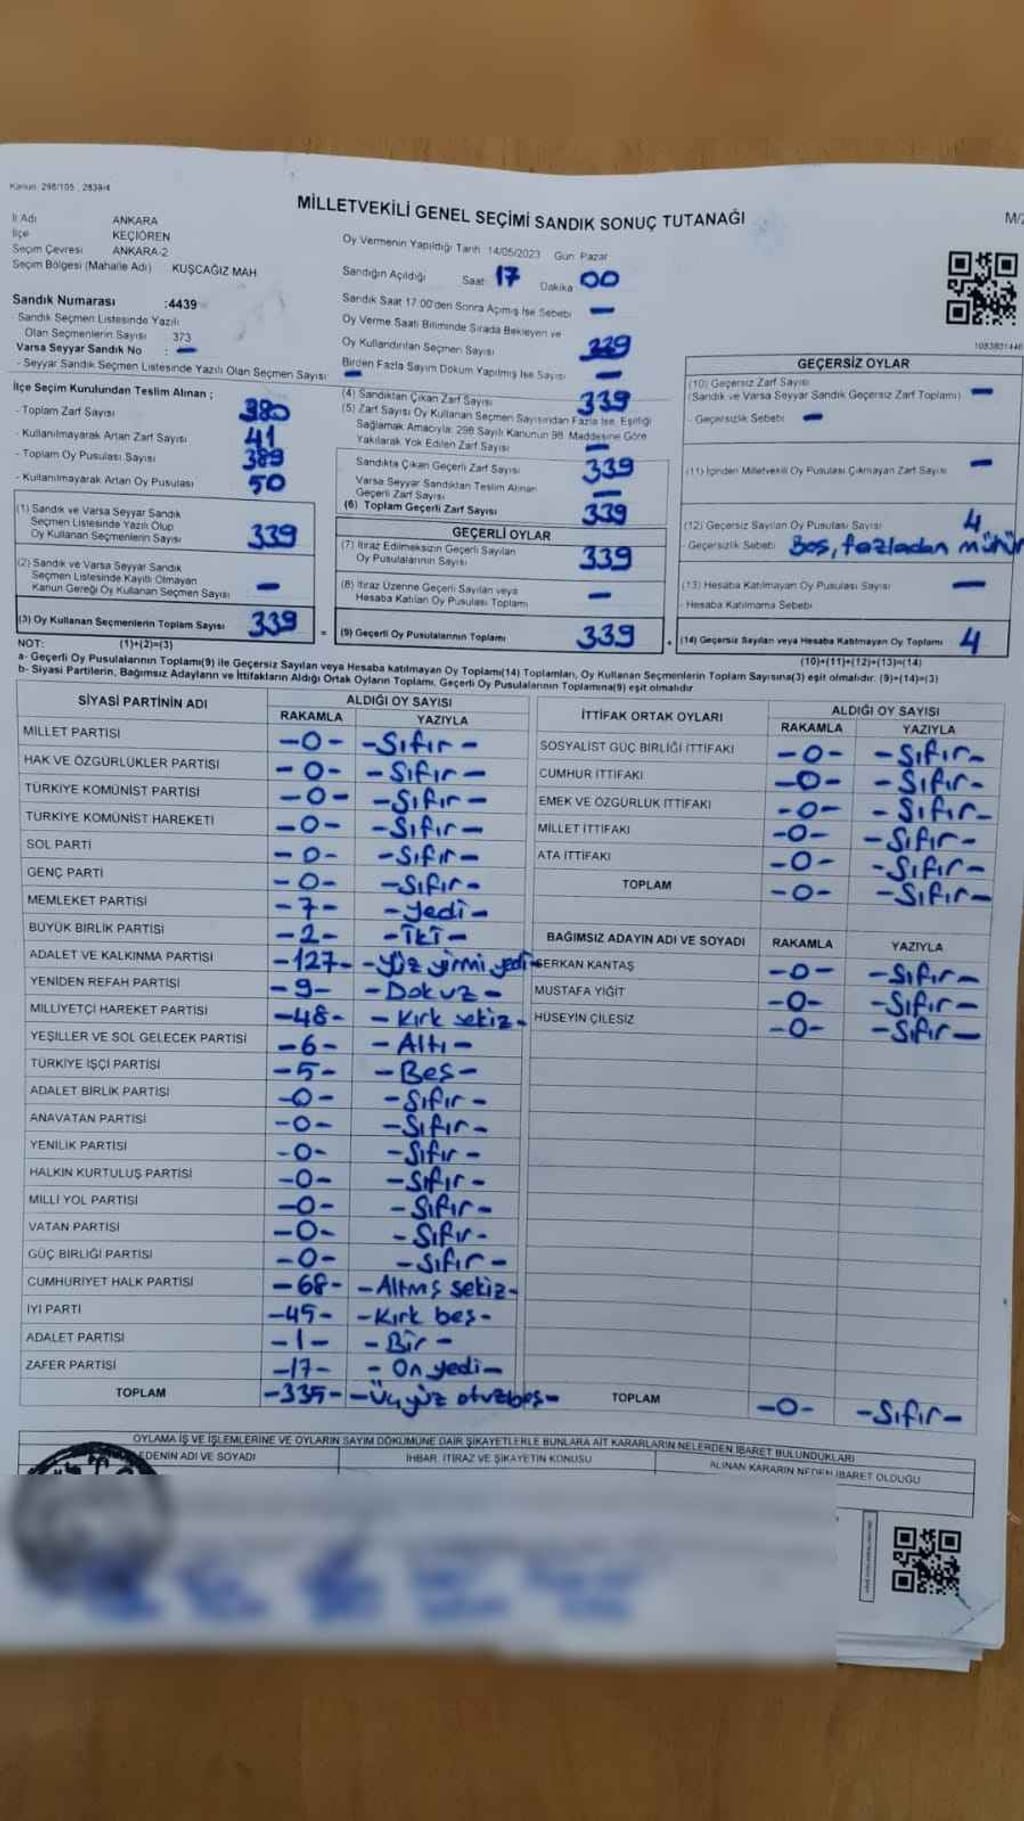 Kanun: 298/105 , 2839/4
MİLLETVEKİLİ GENEL SEÇİMİ SANDIK SONUÇ TUTANAĞI
M/2
İl Adı ANKARA
İlçe KEÇİÖREN
Seçim Çevresi ANKARA-2
Seçim Bölgesi (Mahalle Adı) KUŞCAĞIZ MAH
Sandık Numarası :4439
Sandık Seçmen Listesinde Yazılı
Olan Seçmenlerin Sayısı 373
Varsa Seyyar Sandık No : -
- Seyyar Sandık Seçmen Listesinde Yazılı Olan Seçmen Sayısı -
İlçe Seçim Kurulundan Teslim Alınan ;
- Toplam Zarf Sayısı 380
- Kullanılmayarak Artan Zarf Sayısı 41
- Toplam Oy Pusulası Sayısı 389
- Kullanılmayarak Artan Oy Pusulası 50
(1) Sandık ve Varsa Seyyar Sandık
Seçmen Listesinde Yazılı Olup
Oy Kullanan Seçmenlerin Sayısı 339
(2) Sandık ve Varsa Seyyar Sandık
Seçmen Listesinde Kayıtlı Olmayan
Kanun Gereği Oy Kullanan Seçmen Sayısı -
(3) Oy Kullanan Seçmenlerin Toplam Sayısı 339
Oy Vermenin Yapıldığı Tarih 14/05/2023 Gün: Pazar
Sandığın Açıldığı Saat 17 Dakika 00
Sandık Saat 17:00'den Sonra Açılmış İse Sebebi -
Oy Verme Saati Bitiminde Sırada Bekleyen ve
Oy Kullandırılan Seçmen Sayısı
Birden Fazla Sayım Döküm Yapılmış İse Sayısı -
(4) Sandıktan Çıkan Zarf Sayısı 339
(5) Zarf Sayısı Oy Kullanan Seçmen Sayısından Fazla İse, Eşitliği
Sağlamak Amacıyla; 298 Sayılı Kanunun 98. Maddesine Göre
Yakılarak Yok Edilen Zarf Sayısı -
Sandıkta Çıkan Geçerli Zarf Sayısı 339
Varsa Seyyar Sandıktan Teslim Alınan
Geçerli Zarf Sayısı -
(6) Toplam Geçerli Zarf Sayısı 339
GEÇERLİ OYLAR
(7) İtiraz Edilmeksizin Geçerli Sayılan
Oy Pusulalarının Sayısı 339
(8) İtiraz Üzerine Geçerli Sayılan veya
Hesaba Katılan Oy Pusulası Toplamı -
= (9) Geçerli Oy Pusulalarının Toplamı 339
1083801446
GEÇERSİZ OYLAR
(10) Geçersiz Zarf Sayısı
(Sandık ve Varsa Seyyar Sandık Geçersiz Zarf Toplamı) -
- Geçersizlik Sebebi -
(11) İçinden Milletvekili Oy Pusulası Çıkmayan Zarf Sayısı -
(12) Geçersiz Sayılan Oy Pusulası Sayısı 4
- Geçersizlik Sebebi Boş, fazladan mühür
(13) Hesaba Katılmayan Oy Pusulası Sayısı -
- Hesaba Katılmama Sebebi
+ (14) Geçersiz Sayılan veya Hesaba Katılmayan Oy Toplamı 4
NOT: (1)+(2)=(3)
(10)+(11)+(12)+(13)=(14)
a- Geçerli Oy Pusulalarının Toplamı(9) ile Geçersiz Sayılan veya Hesaba katılmayan Oy Toplamı(14) Toplamları, Oy Kullanan Seçmenlerin Toplam Sayısına(3) eşit olmalıdır. (9)+(14)=(3)
b- Siyasi Partilerin, Bağımsız Adayların ve İttifakların Aldığı Ortak Oyların Toplamı, Geçerli Oy Pusulalarının Toplamına(9) eşit olmalıdır
SİYASİ PARTİNİN ADI ALDIĞI OY SAYISI
RAKAMLA YAZIYLA
MİLLET PARTİSİ -0- -Sıfır-
HAK VE ÖZGÜRLÜKLER PARTİSİ -0- -Sıfır-
TÜRKİYE KOMÜNİST PARTİSİ -0- -Sıfır-
TÜRKİYE KOMÜNİST HAREKETİ -0- -Sıfır-
SOL PARTİ -0- -Sıfır-
GENÇ PARTİ -0- -Sıfır-
MEMLEKET PARTİSİ -7- -Yedi-
BÜYÜK BİRLİK PARTİSİ -2- -İki-
ADALET VE KALKINMA PARTİSİ -127- -Yüz yirmi yedi-
YENİDEN REFAH PARTİSİ -9- -Dokuz-
MİLLİYETÇİ HAREKET PARTİSİ -48- -Kırk sekiz-
YEŞİLLER VE SOL GELECEK PARTİSİ -6- -Altı-
TÜRKİYE İŞÇİ PARTİSİ -5- -Beş-
ADALET BİRLİK PARTİSİ -0- -Sıfır-
ANAVATAN PARTİSİ -0- -Sıfır-
YENİLİK PARTİSİ -0- -Sıfır-
HALKIN KURTULUŞ PARTİSİ -0- -Sıfır-
MİLLİ YOL PARTİSİ -0- -Sıfır-
VATAN PARTİSİ -0- -Sıfır-
GÜÇ BİRLİĞİ PARTİSİ -0- -Sıfır-
CUMHURİYET HALK PARTİSİ -68- -Altmş sekiz-
İYİ PARTİ -45- -Kırk beş-
ADALET PARTİSİ -1- -Bir-
ZAFER PARTİSİ -17- -On yedi-
TOPLAM -335- -Üçyüz otuzbeş-
İTTİFAK ORTAK OYLARI ALDIĞI OY SAYISI
RAKAMLA YAZIYLA
SOSYALİST GÜÇ BİRLİĞİ İTTİFAKI -0- -Sıfır-
CUMHUR İTTİFAKI -0- -Sıfır-
EMEK VE ÖZGÜRLÜK İTTİFAKI -0- -Sıfır-
MİLLET İTTİFAKI -0- -Sıfır-
ATA İTTİFAKI -0- -Sıfır-
TOPLAM -0- -Sıfır-
BAĞIMSIZ ADAYIN ADI VE SOYADI RAKAMLA YAZIYLA
SERKAN KANTAŞ -0- -Sıfır-
MUSTAFA YİĞİT -0- -Sıfır-
HÜSEYİN ÇİLESİZ -0- -Sıfır-
TOPLAM -0- -Sıfır-
OYLAMA İŞ VE İŞLEMLERİNE VE OYLARIN SAYIM DÖKÜMÜNE DAİR ŞİKAYETLERLE BUNLARA AİT KARARLARIN NELERDEN İBARET BULUNDUKLARI
EDENİN ADI VE SOYADI İHBAR, İTİRAZ VE ŞİKAYETİN KONUSU ALINAN KARARIN NEDEN İBARET OLDUĞU